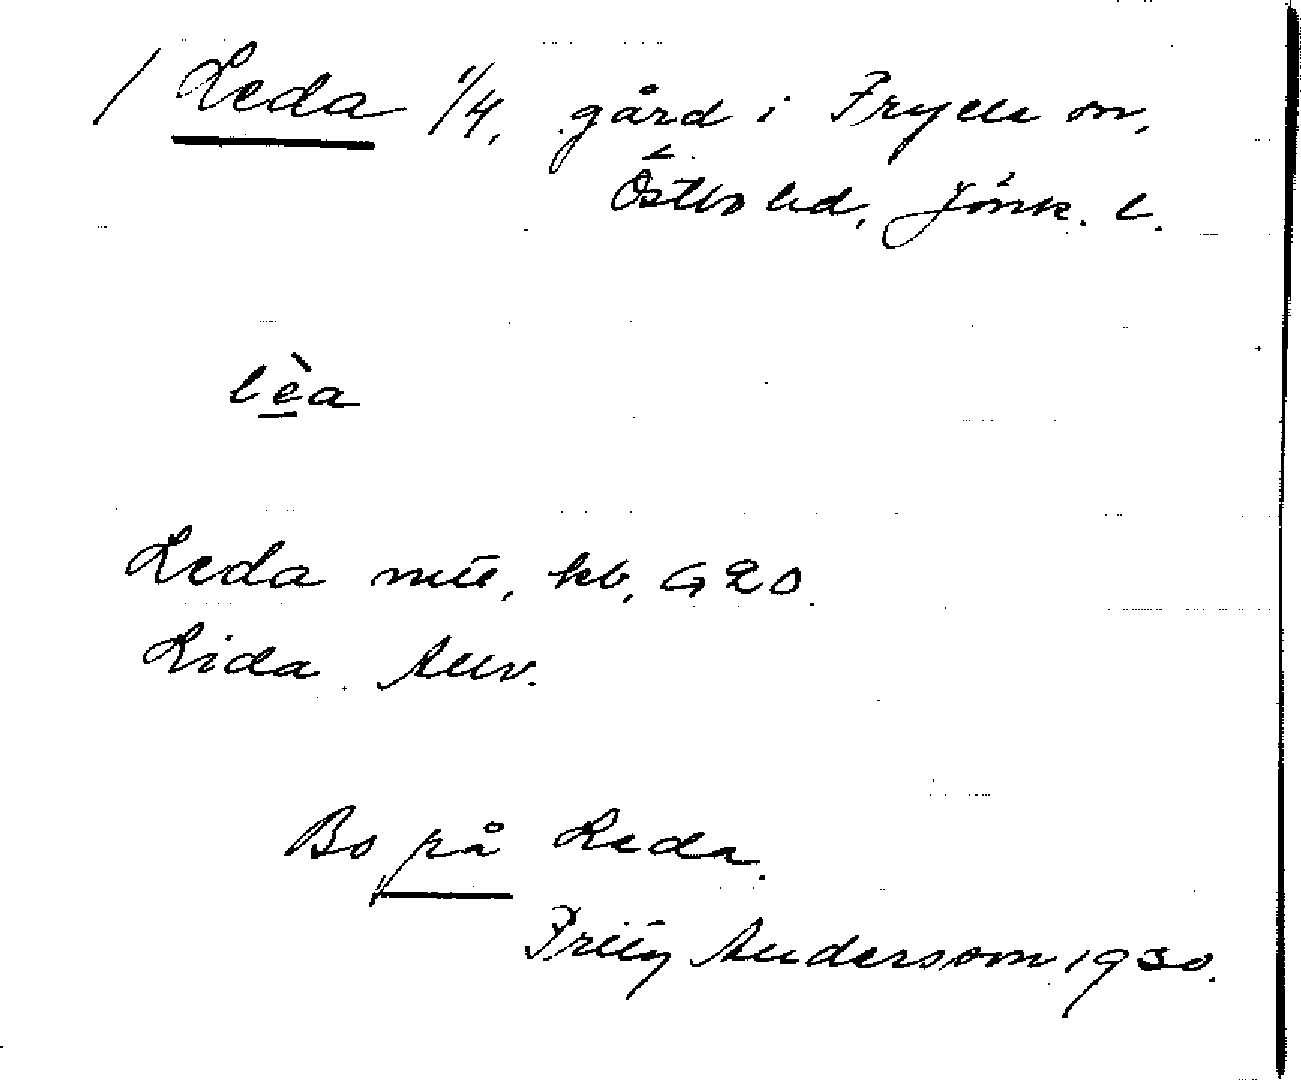 / Leda 1/4, gård i Fryele sn,
Östbo hd, Jönk. l.
lèa
Leda mtl, kb, G20.
Lida Anv.
Bo på Leda.
Fritz Andersson 1930.